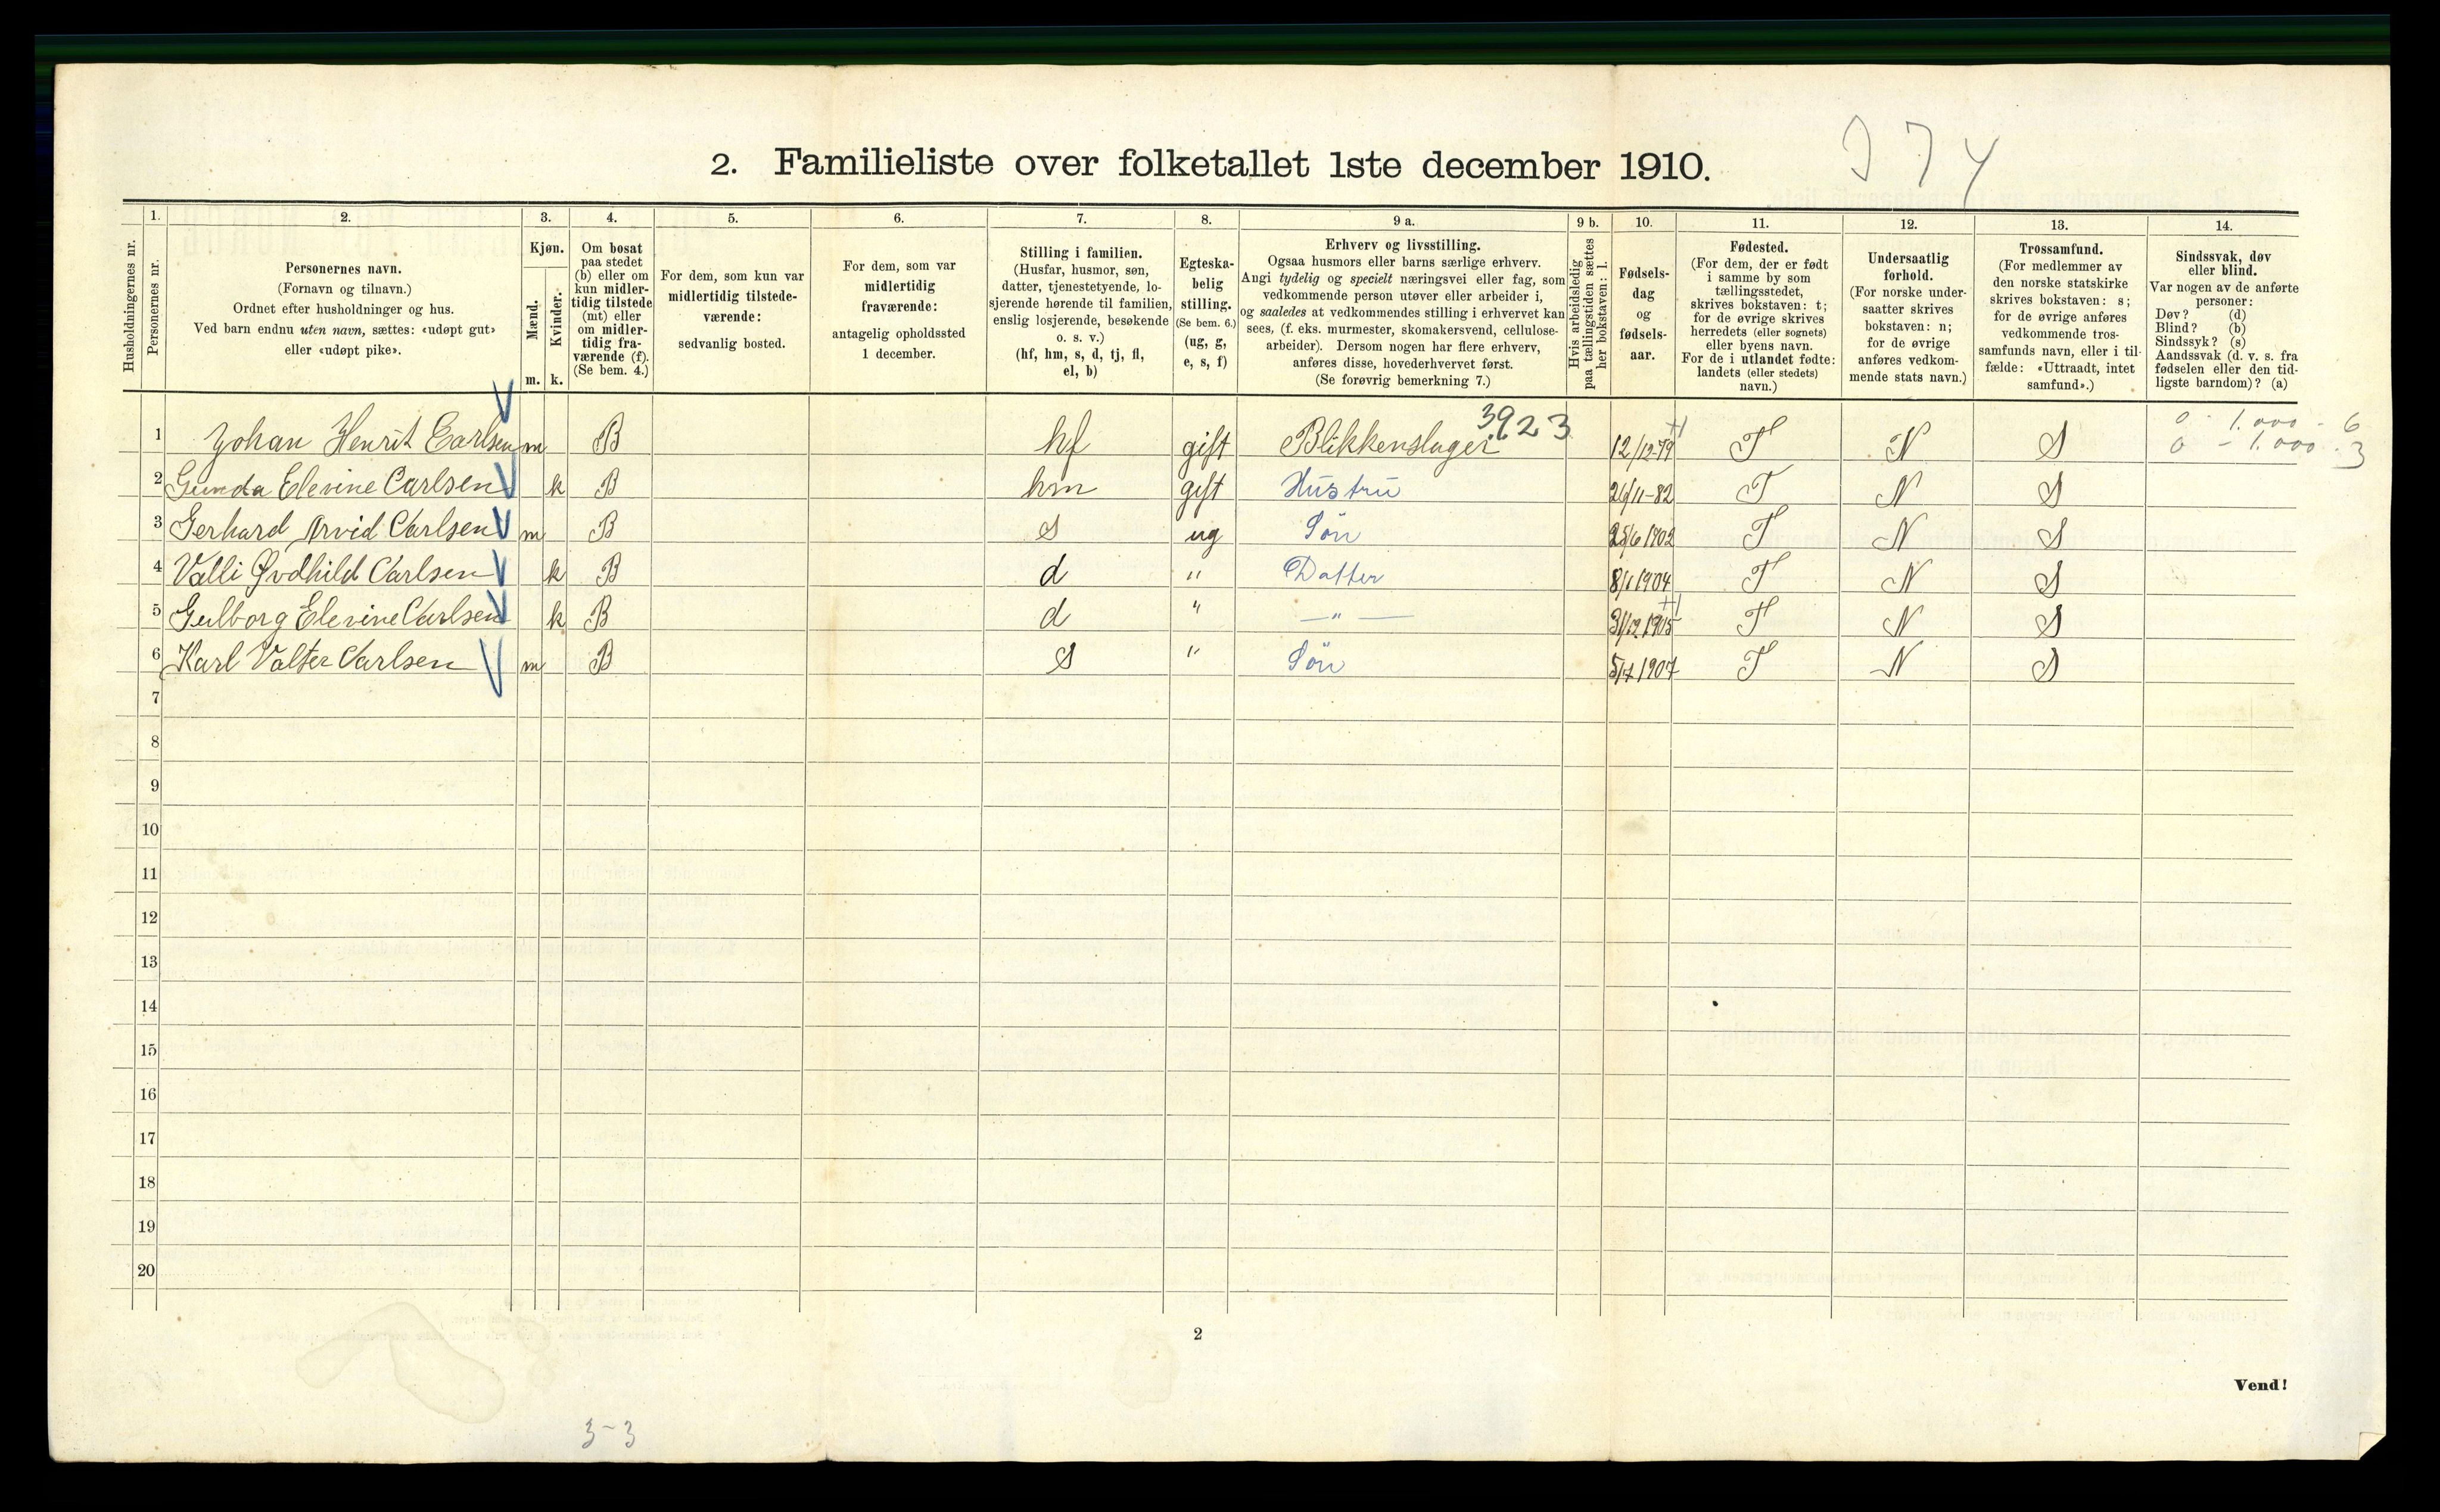 974
2. Familieliste over folketallet 1ste december 1910.
Husholdningernes nr.
1. Personernes nr.
2. Personernes navn.
(Fornavn og tilnavn.)
Ordnet efter husholdninger og hus.
Ved barn endnu uten navn, sættes: «udøpt gut»
eller «udøpt pike».
3. Kjøn.
Mænd. m.
Kvinder. k.
4. Om bosat
paa stedet
(b) eller om
kun midler-
tidig tilstede
(mt) eller
om midler-
tidig fra-
værende (f).
(Se bem. 4.)
5. For dem, som kun var
midlertidig tilstede-
værende:
sedvanlig bosted.
6. For dem, som var
midlertidig
fraværende:
antagelig opholdssted
1 december.
7. Stilling i familien.
(Husfar, husmor, søn,
datter, tjenestetyende, lo-
sjerende hørende til familien,
enslig losjerende, besøkende
o. s. v.)
(hf, hm, s, d, tj, fl,
el, b)
8. Egteska-
belig
stilling.
(Se bem. 6.)
(ug, g,
e, s, f)
9 a. Erhverv og livsstilling.
Ogsaa husmors eller barns særlige erhverv.
Angi tydelig og specielt næringsvei eller fag, som
vedkommende person utøver eller arbeider i,
og saaledes at vedkommendes stilling i erhvervet kan
sees, (f. eks. murmester, skomakersvend, cellulose-
arbeider). Dersom nogen har flere erhverv,
anføres disse, hovederhvervet først.
(Se forøvrig bemerkning 7.)
9 b. Hvis arbeidsledig
paa tællingstiden sættes
her bokstaven: l.
10. Fødsels-
dag
og
fødsels-
aar.
11. Fødested.
(For dem, der er født
i samme by som
tællingsstedet,
skrives bokstaven: t;
for de øvrige skrives
herredets (eller sognets)
eller byens navn.
For de i utlandet fødte:
landets (eller stedets)
navn.)
12. Undersaatlig
forhold.
(For norske under-
saatter skrives
bokstaven: n;
for de øvrige
anføres vedkom-
mende stats navn.)
13. Trossamfund.
(For medlemmer av
den norske statskirke
skrives bokstaven: s;
for de øvrige anføres
vedkommende tros-
samfunds navn, eller i til-
fælde: «Uttraadt, intet
samfund».)
14. Sindssvak, døv
eller blind.
Var nogen av de anførte
personer:
Døv? (d)
Blind? (b)
Sindssyk? (s)
Aandssvak (d. v. s. fra
fødselen eller den tid-
ligste barndom)? (a)
3923
0 - 1.000 - 6
1 Johan Henrik Carlsen m B hf gift Blikkenslager 12/12-79 T N S 0 - 1.000 - 3
2 Gunda Elevine Carlsen k B hm gift Hustru 26/11-82 T N S
3 Gerhard Arvid Carlsen m B S ug Sön 25/6 1902 T N S
4 Valli Ovdhild Carlsen k B d " Datter 8/1 1904 T N S
5 Gulborg Elevine Carlsen k B d " — " — 31/12 1905 T N S
6 Karl Valter Carlsen m B S " Sön 5/7 1907 T N S
7
8
9
10
11
12
13
14
15
16
17
18
19
20
2
Vend!
3-3